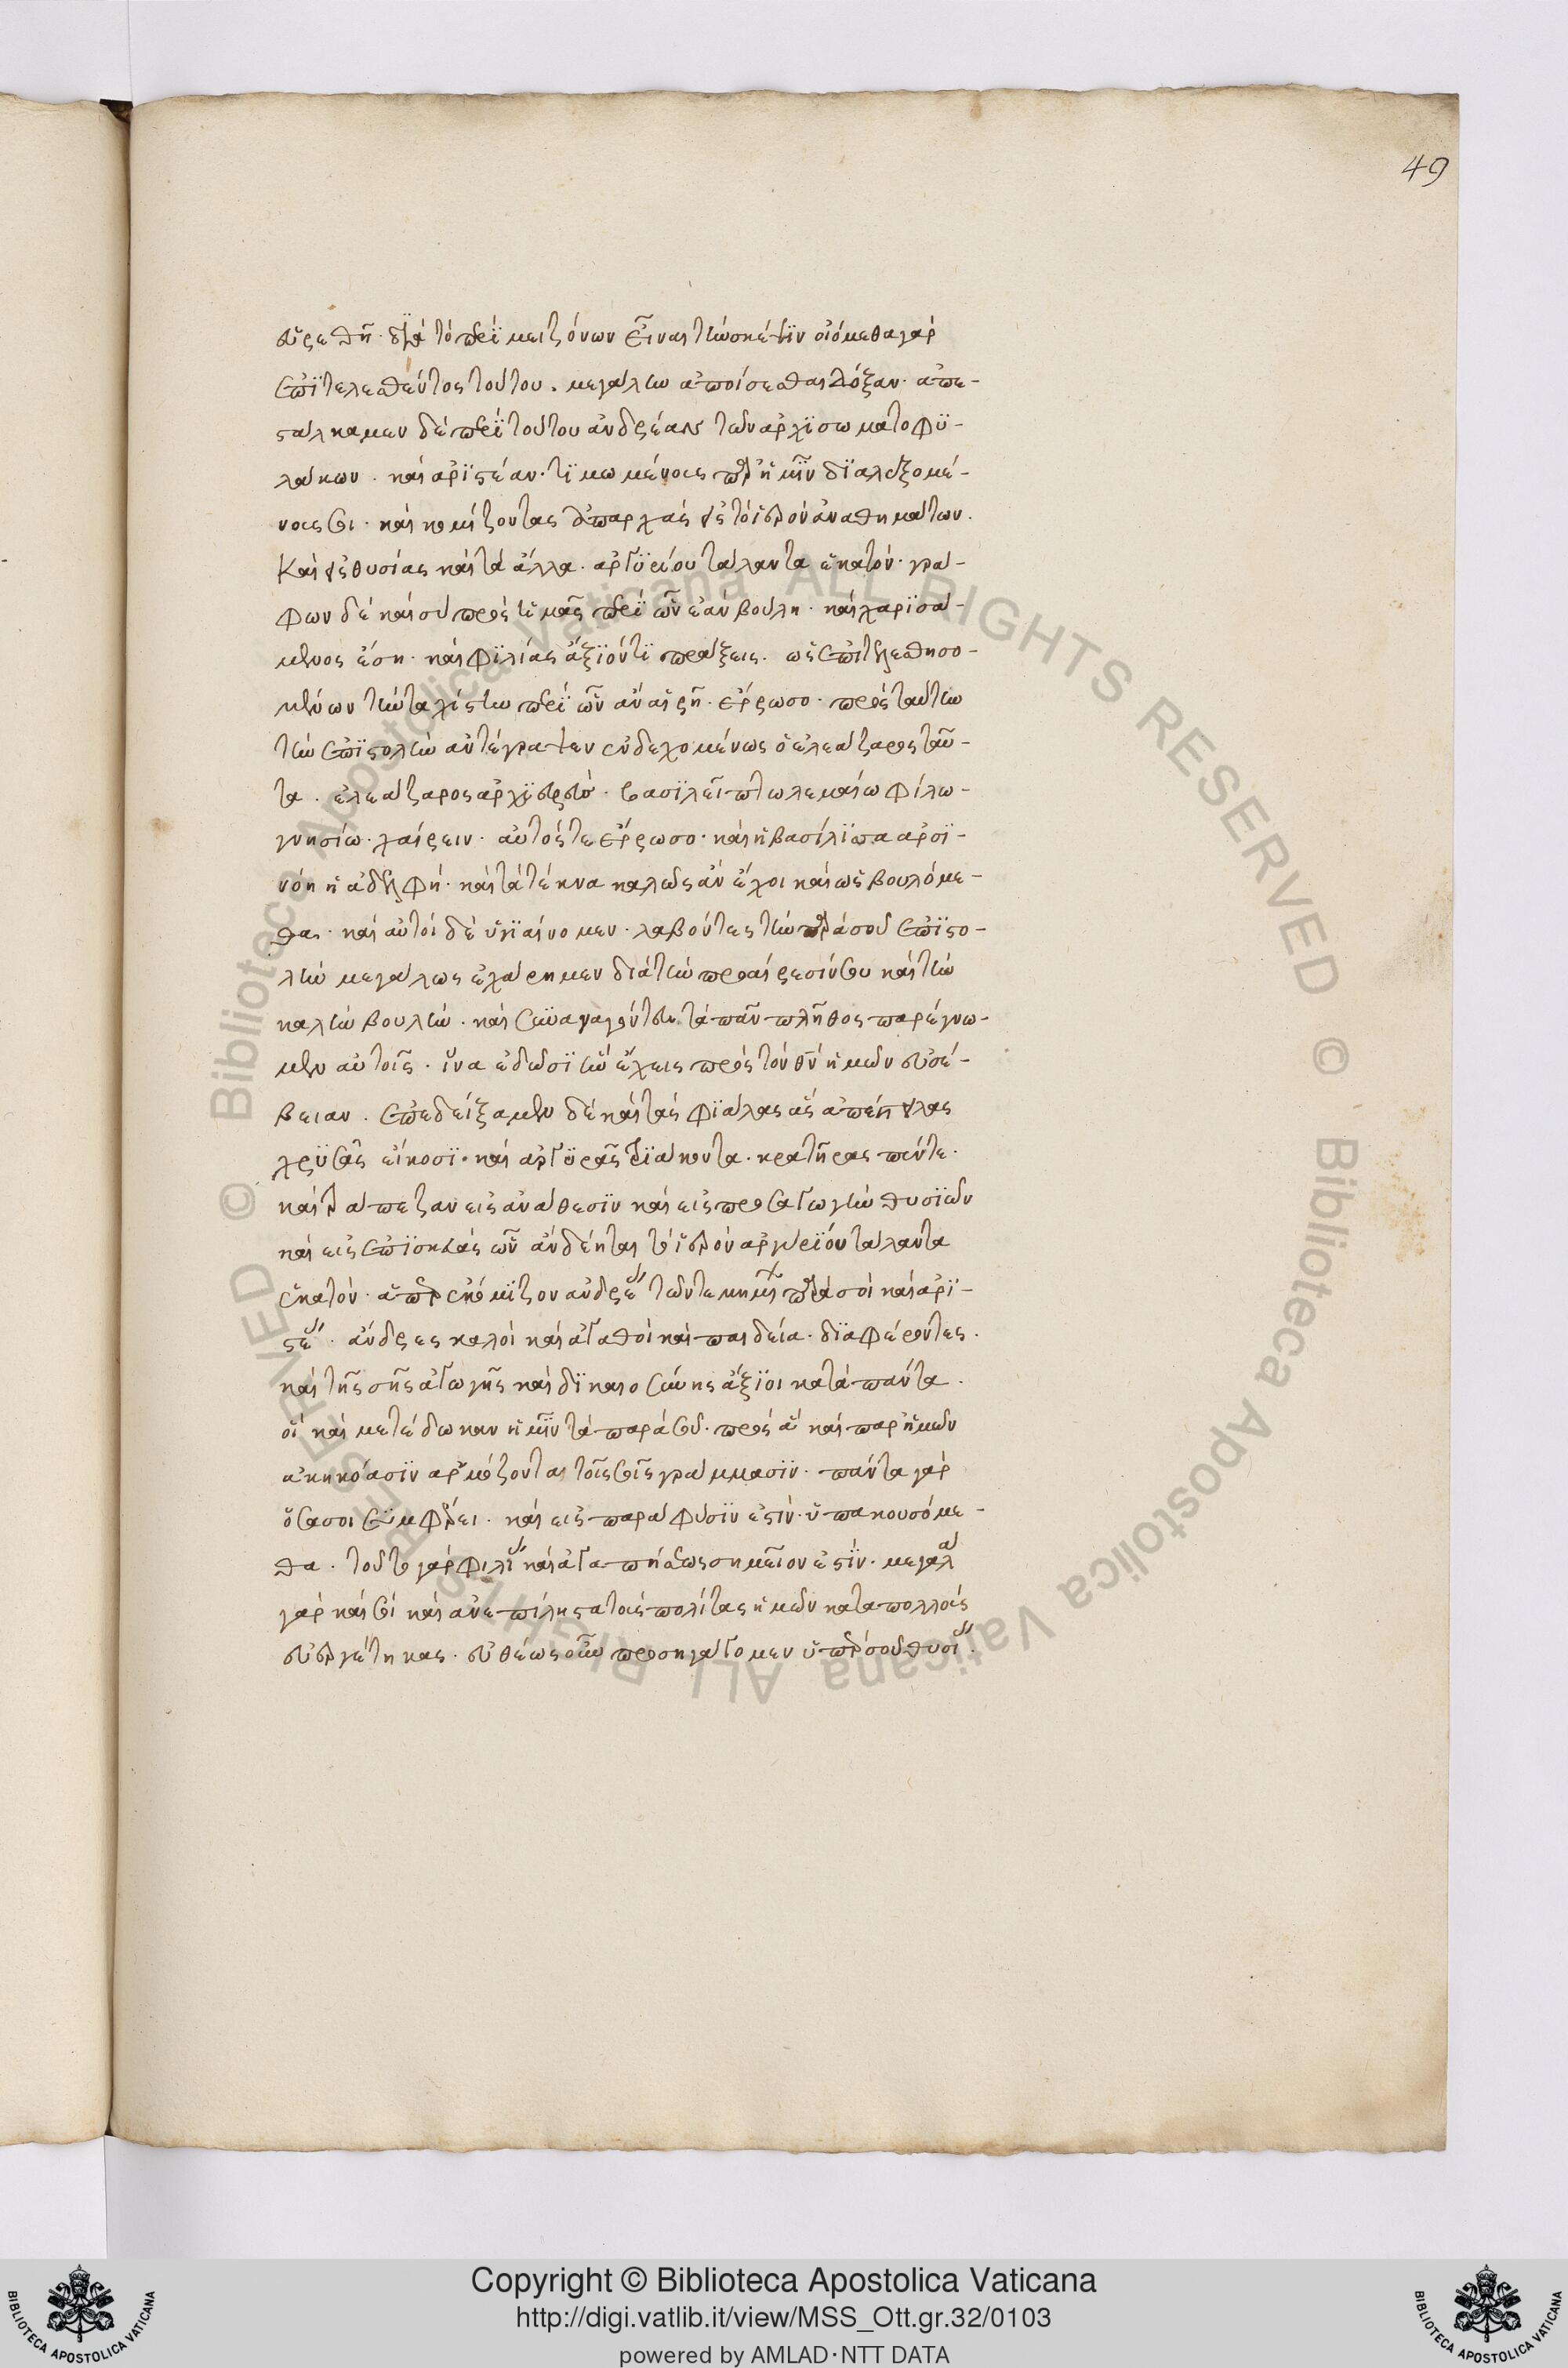 49
εὑρεθῆ· διὰ τὸ περὶ μειζόνων εἶναι τὴν σκέψιν οἰόμεθα γὰρ
ἐπιτελεσθέντος τούτου. μεγάλην ἀποίσεσθαι δόξαν· ἀπε-
στάλκαμεν δὲ περὶ τούτου ἀνδρέαν τῶν ἀρχισωματοφυ-
λάκων. καὶ ἀριστέαν· τιμωμένους παρ' ἡμῖν διαλεξομέ-
νους σοι· καὶ κομίζοντας ἀπαρχὰς εἰς τὸ ἱερὸν ἀναθημάτων.
Καὶ εἰς θυσίας καὶ τὰ ἄλλα. ἀργυρίου τάλαντα ἑκατόν· γρά-
φων δὲ καὶ σὺ πρὸς ἡμᾶς περὶ ὧν ἐὰν βούλη· καὶ χαρισά-
μενος ἔση· καὶ φιλίας ἄξιόν τι πράξεις. ὡς ἐπιτελεσθησο-
μένων τὴν ταχίστην περὶ ὧν ἂν αἱρῆ. ἔρρωσο· πρὸς ταύτην
τὴν ἐπιστολὴν ἀντέγραψεν ἐνδεχομένως ὁ ἐλεάζαρος ταῦ-
τα. ἐλεάζαρος ἀρχιερεὺς. βασιλεῖ πτωλεμαίω φίλω
γνησίω· χαίρειν· αὐτός τε ἔρρωσο· καὶ ἡ βασίλισσα ἀρσι-
νόη ἡ ἀδελφή· καὶ τὰ τέκνα καλῶς ἂν ἔχοι καὶ ὡς βουλόμε-
θα· καὶ αὐτοὶ δὲ ὑγιαίνομεν· λαβόντες τὴν παρὰ σοῦ ἐπιστο-
λὴν μεγάλως ἐχάρημεν διὰ τὴν προαίρεσίν σου καὶ τὴν
καλὴν βουλήν. καὶ συναγαγόντες τὸ πᾶν πλῆθος παρέγνω-
μεν αὐτοῖς. ἵνα εἰδῶσιν ἣν ἔχεις πρὸς τὸν θν ἡμῶν εὐσέ-
βειαν. ἐπεδείξαμεν δὲ καὶ τὰς φιάλας ἃς ἀπέστειλας
χρυσᾶς εἴκοσι· καὶ ἀργυρᾶς τριάκοντα. κρατῆρας πέντε.
καὶ τράπεζαν εἰς ἀνάθεσιν καὶ εἰς προσαγωγὴν θυσιῶν
καὶ εἰς ἐπισκευὰς ὧν ἂν δέηται τὸ ἱερὸν ἀργυρίου τάλαντα
ἑκατόν· ἅπερ ἐκόμιζον ἀνδρέας τῶν τετιμημένων παρὰ σοὶ καὶ ἀρι-
στέας. ἄνδρες καλοὶ καὶ ἀγαθοὶ καὶ παιδεία. διαφέροντες.
καὶ τῆς σῆς ἀγωγῆς καὶ δικαιοσύνης ἄξιοι κατὰ πάντα.
οἳ καὶ μετέδωκαν ἡμῖν τὰ παρὰ σοῦ. πρὸς ἃ καὶ παρ' ἡμῶν
ἀκηκόασιν ἁρμόζοντα τοῖς σοῖς γράμμασιν. πάντα γὰρ
ὅσα σοι συμφέρει. καὶ εἰ παρὰ φύσιν ἐστίν· ὑπακουσόμε-
θα. τοῦτο γὰρ φιλίας καὶ ἀγαπήσεως σημεῖον ἐστίν. μεγάλα
γὰρ καὶ σὺ καὶ ἀνεπίληστα τοὺς πολίτας ἡμῶν κατὰ πολλοὺς
εὐεργέτηκας. εὐθέως οὖν προσηγάγομεν ὑπὲρ σοῦ θυσίας.
Copyright © Biblioteca Apostolica Vaticana
http://digi.vatlib.it/view/MSS_Ott.gr.32/0103
powered by AMLAD·NTT DATA
BIBLIOTECA APOSTOLICA VATICANA
BIBLIOTECA APOSTOLICA VATICANA
© Biblioteca Apostolica Vaticana ALL RIGHTS RESERVED © Biblioteca Apostolica Vaticana ALL RIGHTS RESERVED